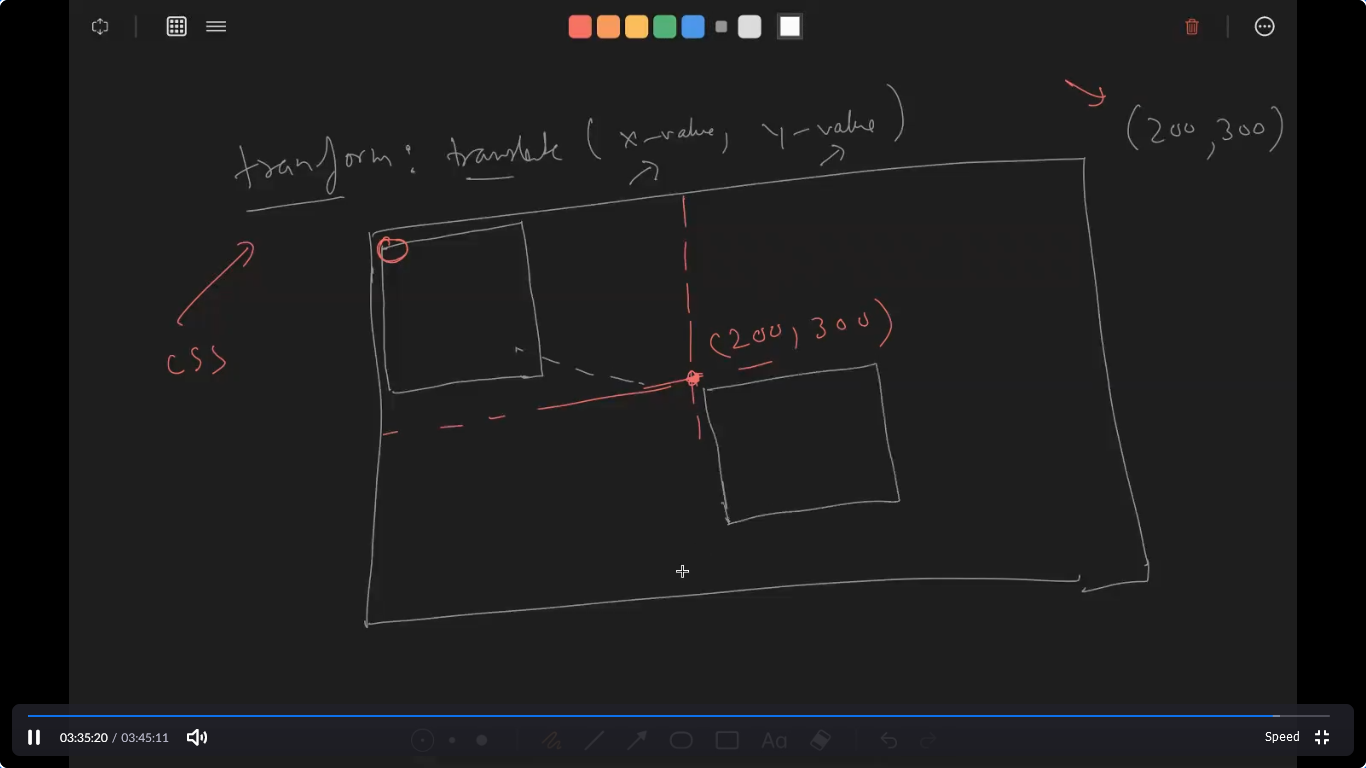 transform: translate ( x-value, y-value )
(200,300)
(200, 300)
CSS
Aa
03:35:20 / 03:45:11
Speed